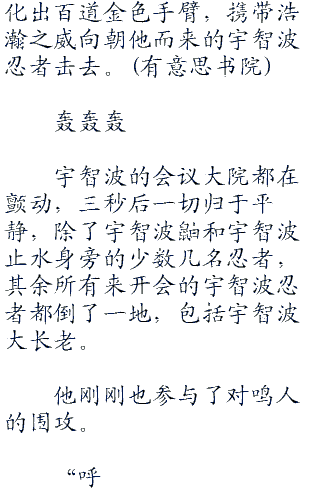 化出百道金色手臂，携带浩
瀚之威向朝他而来的宇智波
忍者击去。(有意思书院)
轰轰轰
宇智波的会议大院都在
颤动，三秒后一切归于平
静，除了宇智波鼬和宇智波
止水身旁的少数几名忍者，
其余所有来开会的宇智波忍
者都倒了一地，包括宇智波
大长老。
他刚刚也参与了对鸣人
的围攻。
“呼